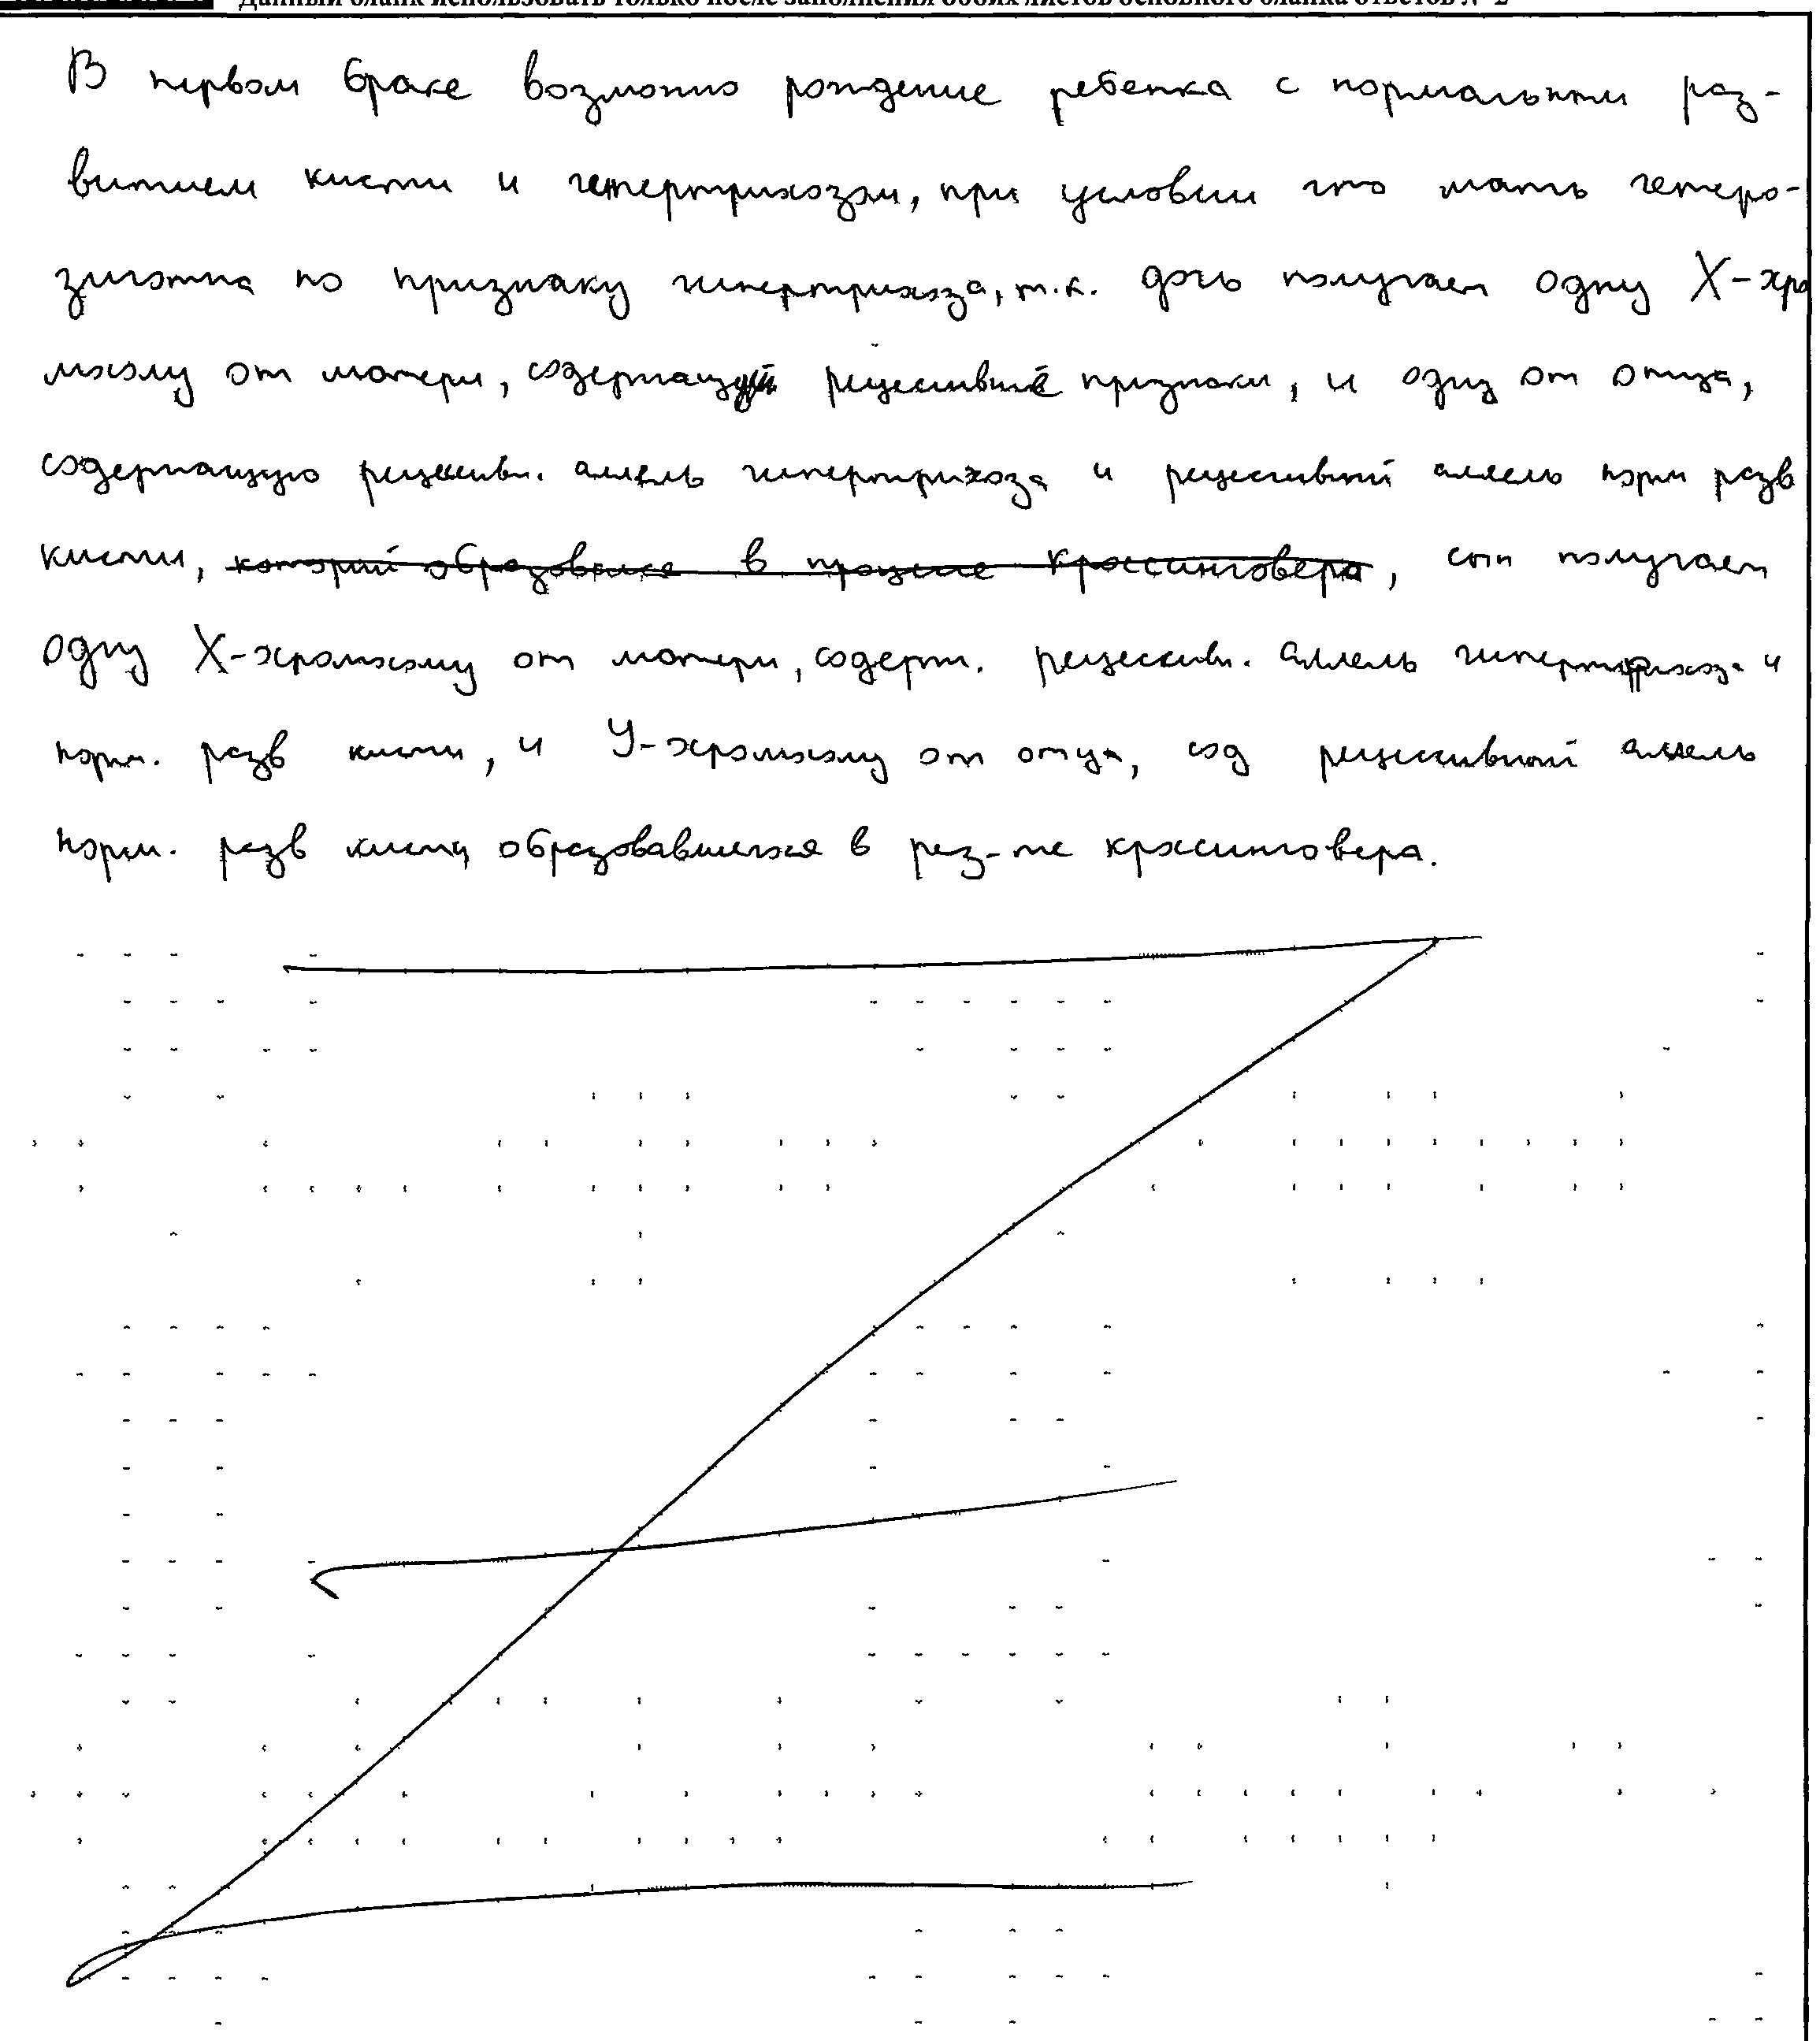 Данный бланк использовать только после заполнения обоих листов основного бланка ответов № 2
В первом браке возможно рождение ребенка с нормальным раз-
витием кисти и гипертрихозом, при условии что мать гетеро-
зиготна по признаку гипертрихоза, т.к. дочь получает одну X-хро
мосому от матери, содержащую рецессивные признаки, и одну от отца,
содержащую рецессивн. аллель гипертрихоза и рецессивный аллель норм разв
кисти, который образовался в процессе кроссинговера, сын получает
одну X-хромосому от матери, содерж. рецессивн. аллель гипертрихоза и
норм. разв кисти, и У-хромосому от отца, сод рецессивный аллель
норм. разв кисти, образовавшегося в рез-те кроссинговера.